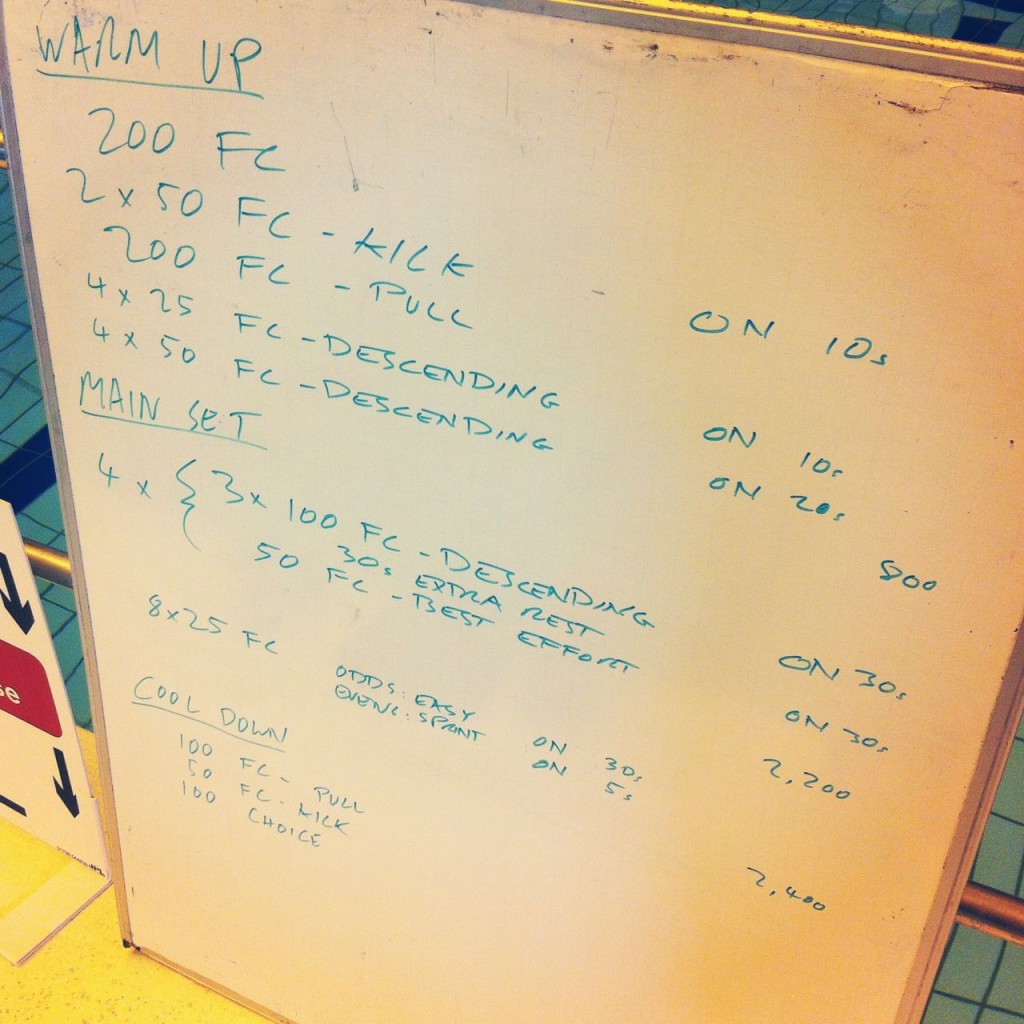 WARM UP
200 FC
2 x 50 FC - KICK ON 10s
200 FC - PULL
4 x 25 FC - DESCENDING ON 10s
4 x 50 FC - DESCENDING ON 20s
800
MAIN SET
4 x { 3 x 100 FC - DESCENDING ON 30s
30s EXTRA REST
50 FC - BEST EFFORT ON 30s
8x25 FC
ODDS: EASY ON 30s
EVENS: SPRINT ON 5s
2,200
COOL DOWN
100 FC - PULL
50 FC - KICK
100 CHOICE
2,400
se